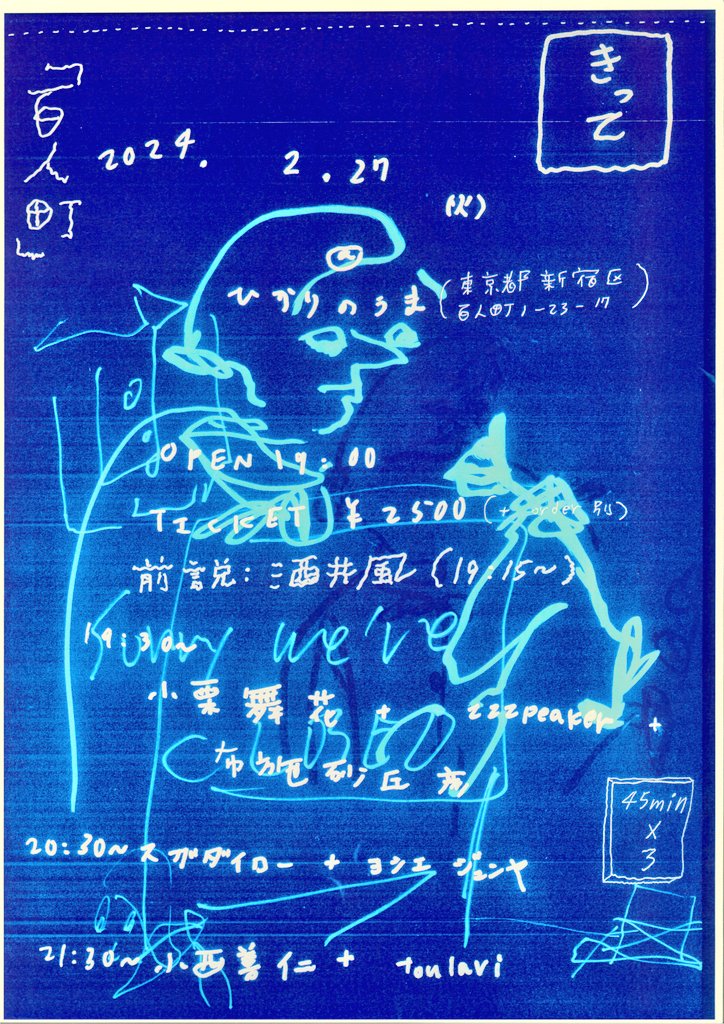 きって
「百人町」
2024. 2.27
(火)
@
ひかりのうま (東京都新宿区
百人町1-23-17)
OPEN 19:00
TICKET ¥2500 (+ order 別)
前説:酒井風 (19:15~)
Sorry we're
19:30~
小栗舞花 + zzzpeaker +
CLOSED
布施砂丘彦
45min
x
3
20:30~ スガダイロー + ヨシエ ジュンヤ
21:30~ 小西善仁 + toulavi